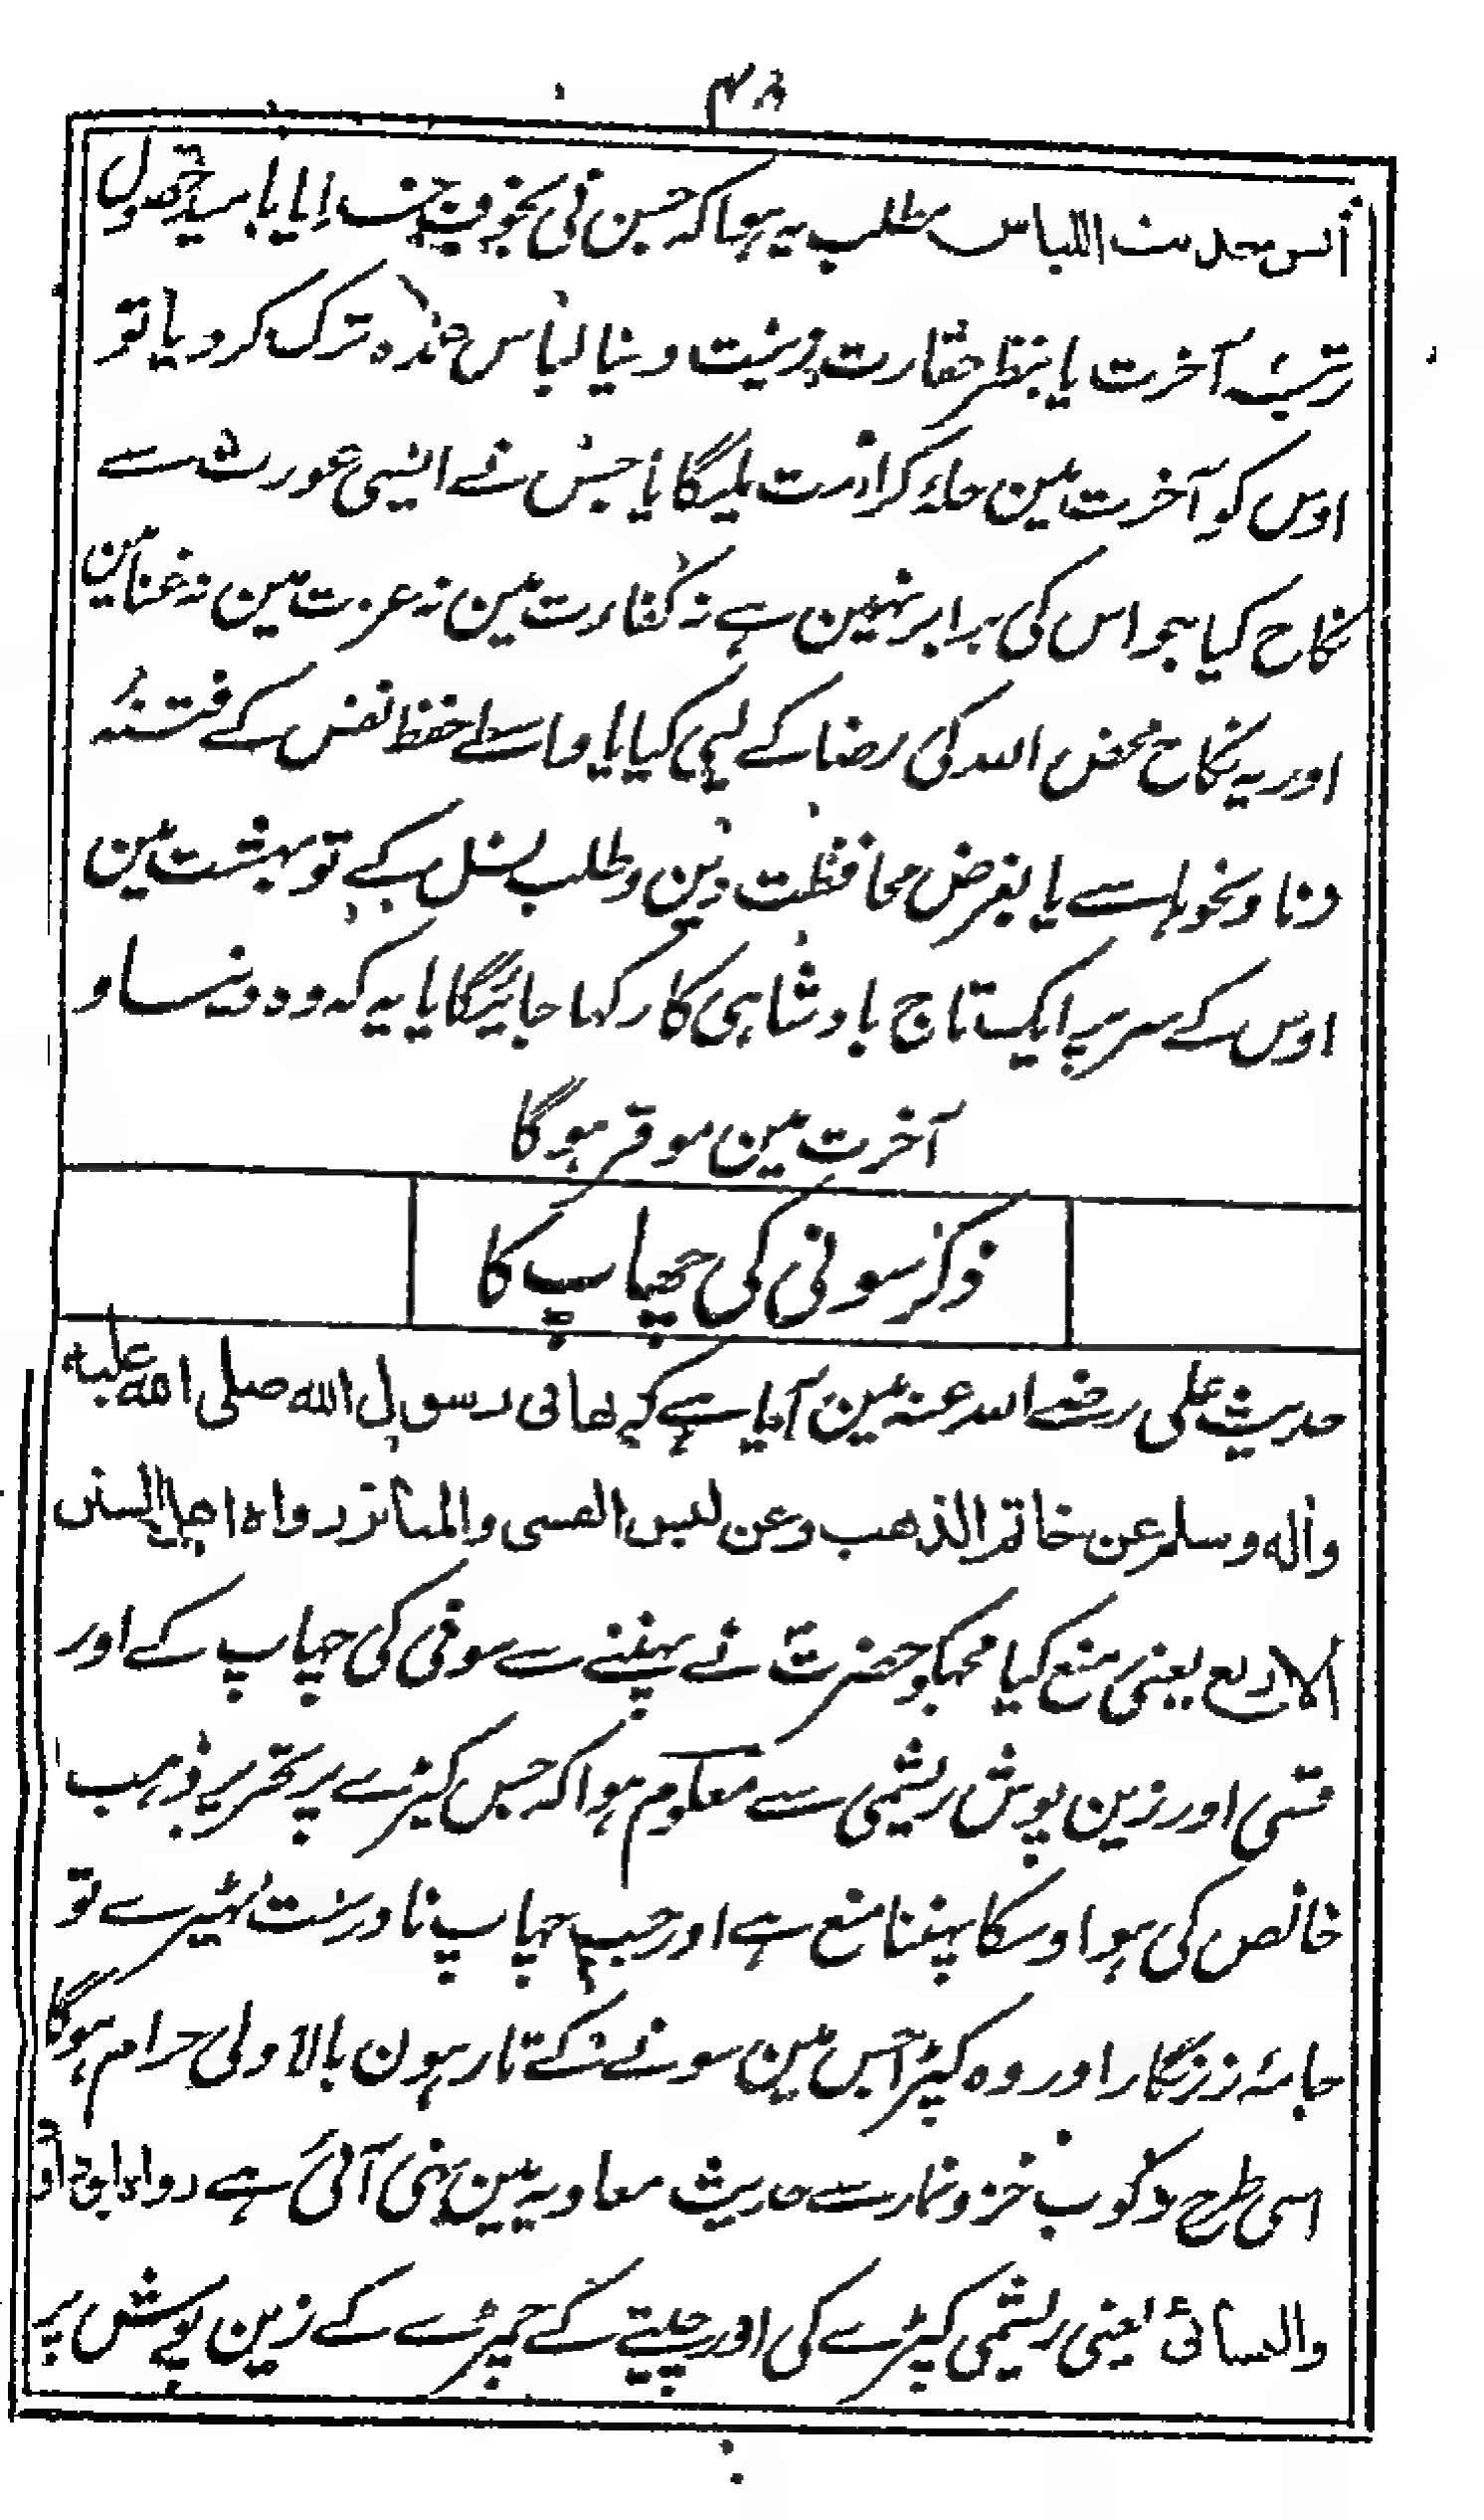 ۴۸
أنس حديث اللباس مطلب یہ ہوا کہ جس نی بخوف خدا یا بامید حصول
رتبۂ آخرت یا بنظر حقارت زینت دنیا لباس عمدہ ترک کر دیا تو
اوس کو آخرت مین حلۂ کرامت ملیگا یا جس نے ایسی عورت سے
نکاح کیا جو اس کی برابر نہین ہے نہ کفارت مین نہ عزت مین نہ غنا مین
اور یہ نکاح محض اللہ کی رضا کے لیی کیا یا واسطے حفظ نفس کے فتنۂ
زنا ونحوہا سے یا بغرض محافظت دین وطلب نسل کے تو بہشت مین
اوس کے سر پر ایک تاج بادشاہی کا رکہا جائیگا یا یہ کہ وہ دنیا و
آخرت مین موقر ہوگا
ذکر سونی کی چھاپ کا
حدیث علی رضے اللہ عنہ مین آیا ہے کہ نھانی رسول الله صلى الله عليه
وآله وسلم عن خاتم الذهب وعن لبس القسى والمياثر رواه اهل السنن
الاربع یعنی منع کیا مجہکو حضرت نے پہننے سے سونی کی چہاپ کے اور
قسی اور زین پوش ریشمی سے معلوم ہوا کہ جس کپڑے پر تحریر ذہب
خالص کی ہو اوسکا پہننا منع ہے اور جب چہاپ نا درست ٹہیرے تو
جامۂ زرنگار اور وہ کپڑا جس مین سونے کے تار ہون بالاولی حرام ہوگا
اسی طرح رکوب خز و نمار سے حدیث معاویہ مین نہی آئی ہے رواه ابو داود
والنسائى یعنی ریشمی کپڑے کی اور چیتے کے چمڑے کے زین پوش پر